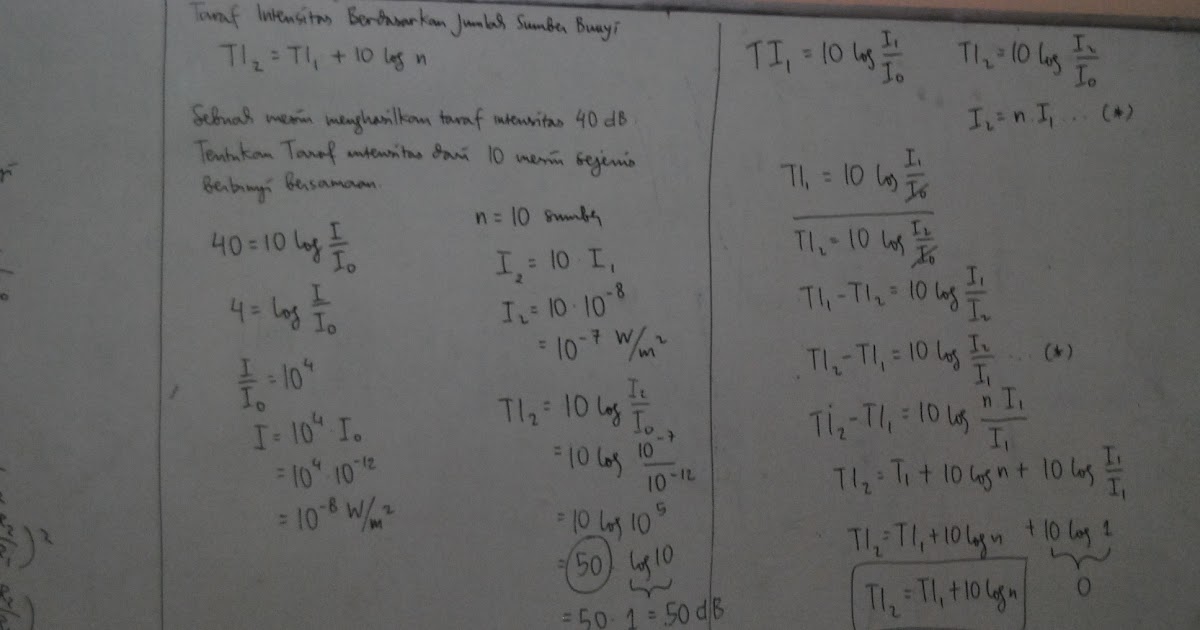 Taraf Intensitas Berdasarkan Jumlah Sumber Bunyi
TI₂ = TI₁ + 10 log n
Sebuah mesin menghasilkan taraf intensitas 40 dB
Tentukan Taraf intensitas dari 10 mesin sejenis
Berbunyi Bersamaan.
40 = 10 log I/I₀
4 = log I/I₀
I/I₀ = 10⁴
I = 10⁴ · I₀
= 10⁴ · 10⁻¹²
= 10⁻⁸ W/m²
n = 10 sumber
I₂ = 10 I₁
I₂ = 10 · 10⁻⁸
= 10⁻⁷ W/m²
TI₂ = 10 log I₂/I₀
= 10 log 10⁻⁷/10⁻¹²
= 10 log 10⁵
= 50 log 10
= 50 · 1 = 50 dB
TI₁ = 10 log I₁/I₀ TI₂ = 10 log I₂/I₀
I₂ = n . I₁ ... (*)
TI₁ = 10 log I₁/I₀
TI₂ = 10 log I₂/I₀
TI₁ - TI₂ = 10 log I₁/I₂
TI₂ - TI₁ = 10 log I₂/I₁ ... (*)
TI₂ - TI₁ = 10 log n I₁/I₁
TI₂ = T₁ + 10 log n + 10 log I₁/I₁
TI₂ = TI₁ + 10 log n + 10 log 1
0
TI₂ = TI₁ + 10 log n